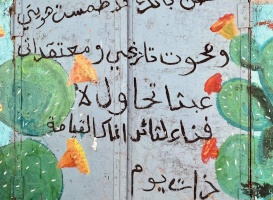 قد طمست هويتي
ومحوت تاريخي ومعتقداتي
عبثا تحاول لا
فناء لثائر انا كالقيامة
ذات يوم